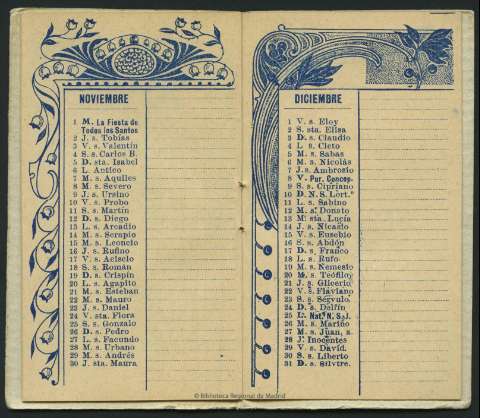 NOVIEMBRE
1 M. La Fiesta de
Todos los Santos
2 J. s. Tobías
3 V. s. Valentín
4 S. s. Carlos B.
5 D. sta. Isabel
6 L. Antico
7 M. s. Aquiles
8 M. s. Severo
9 J. s. Ursino
10 V. s. Probo
11 S. s. Martín
12 D. s. Diego
13 L. s. Arcadio
14 M. s. Serapio
15 M. s. Leoncio
16 J. s. Rufino
17 V. s. Acisclo
18 S. s. Román
19 D. s. Crispín
20 L. s. Agapito
21 M. s. Esteban
22 M. s. Mauro
23 J. s. Daniel
24 V. sta. Flora
25 S. s. Gonzalo
26 D. s. Pedro
27 L. s. Facundo
28 M. s. Urbano
29 M. s. Andrés
30 J. sta. Maura
DICIEMBRE
1 V. s. Eloy
2 S. sta. Elisa
3 D. s. Claudio
4 L. s. Cleto
5 M. s. Sabas
6 M. s. Nicolás
7 J. s. Ambrosio
8 V. Pur. Concep.
9 S. s. Cipriano
10 D. N. S. Lort.º
11 L. s. Sabino
12 M. s. Donato
13 M. sta. Lucía
14 J. s. Nicasio
15 V. s. Eusebio
16 S. s. Abdón
17 D. s. Franco
18 L. s. Rufo
19 M. s. Nemesio
20 M. s. Teófilo
21 J. s. Glicerio
22 V. s. Flaviano
23 S. s. Sérvulo
24 D. s. Delfín
25 L. Nat. N. S. J.
26 M. s. Mariño
27 M. s. Juan, s.
28 J. Inocentes
29 V. s. David.
30 S. s. Liberto
31 D. s. Silvtre.
© Biblioteca Regional de Madrid